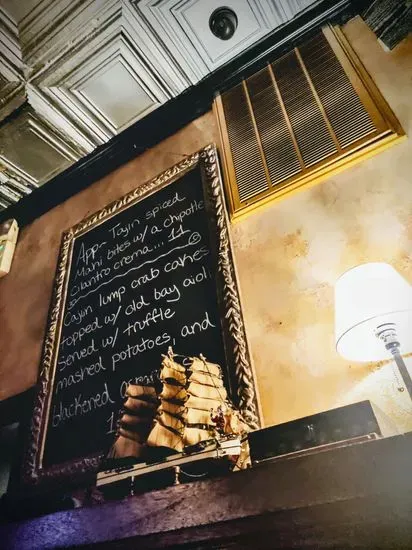 App- Tajin spiced
Mahi bites w/ a chipotle
cilantro crema... 11
Cajun lump crab cakes
topped w/ old bay aioli
served w/ truffle
mashed potatoes and
blackened